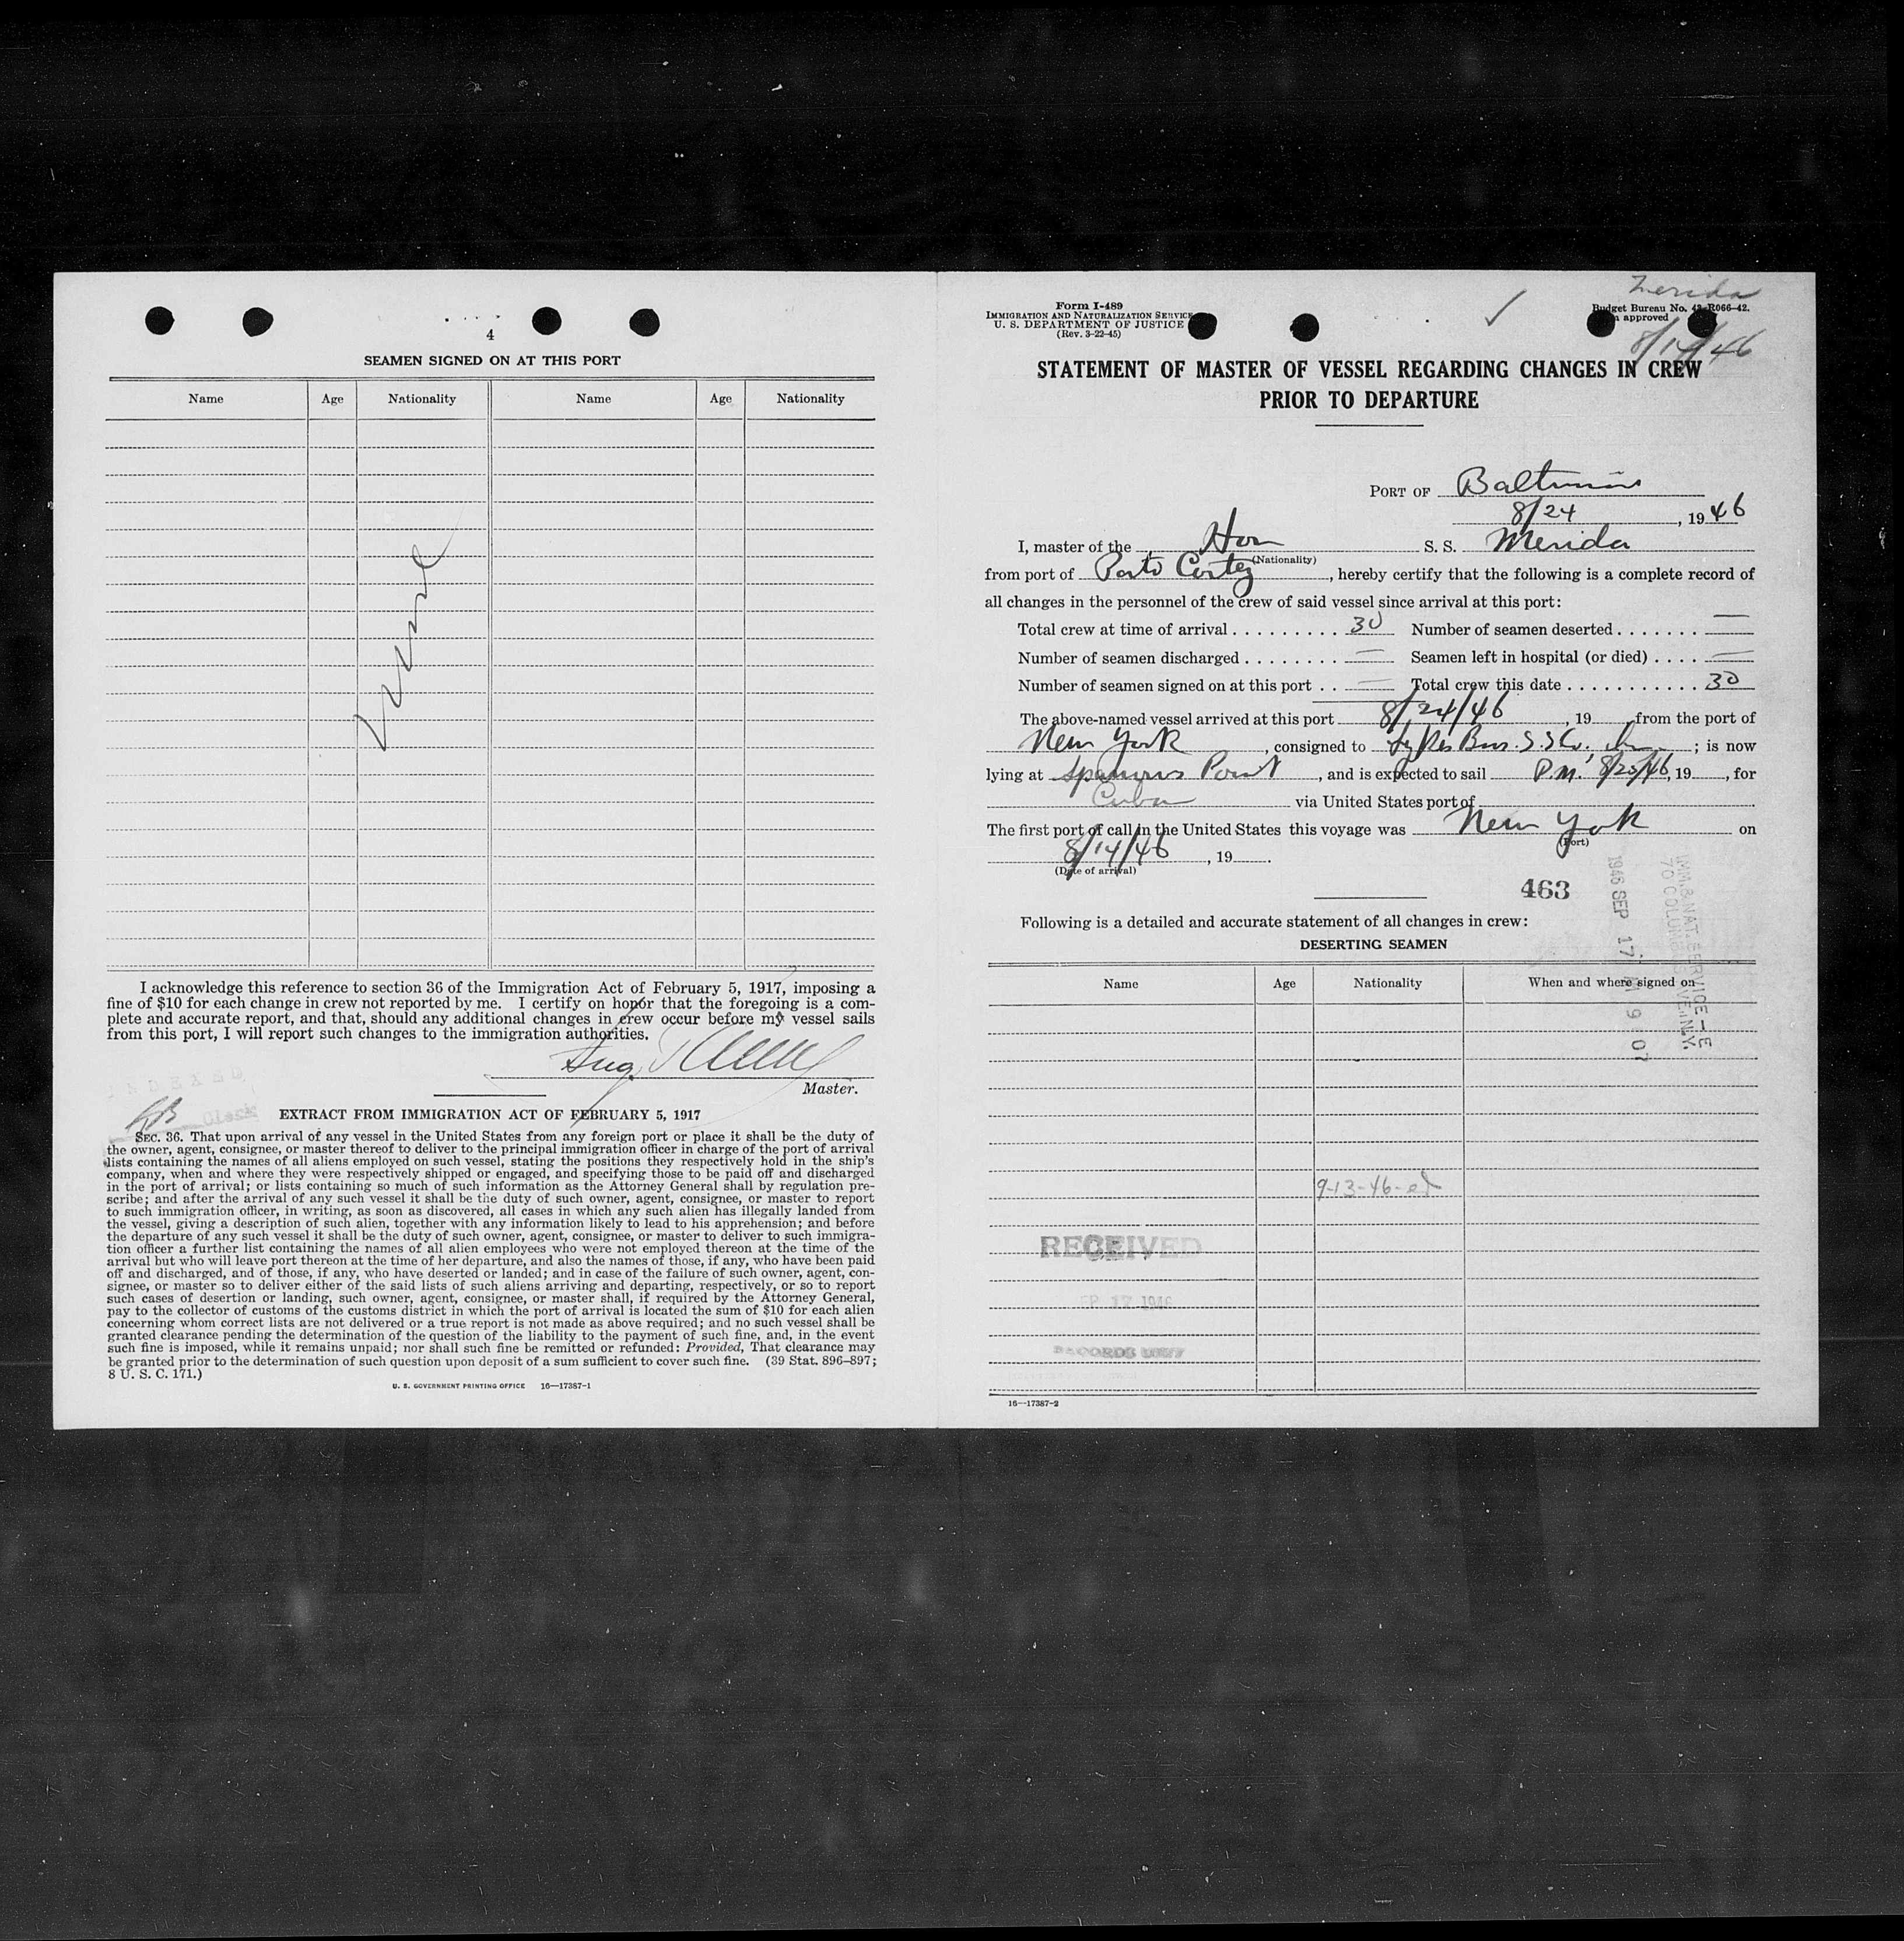 4
SEAMEN SIGNED ON AT THIS PORT
Name Age Nationality Name Age Nationality
I acknowledge this reference to section 36 of the Immigration Act of February 5, 1917, imposing a
fine of $10 for each change in crew not reported by me. I certify on honor that the foregoing is a com-
plete and accurate report, and that, should any additional changes in crew occur before my vessel sails
from this port, I will report such changes to the immigration authorities.
Aug.
Master.
INDEXED
Clerk
EXTRACT FROM IMMIGRATION ACT OF FEBRUARY 5, 1917
SEC. 36. That upon arrival of any vessel in the United States from any foreign port or place it shall be the duty of
the owner, agent, consignee, or master thereof to deliver to the principal immigration officer in charge of the port of arrival
lists containing the names of all aliens employed on such vessel, stating the positions they respectively hold in the ship's
company, when and where they were respectively shipped or engaged, and specifying those to be paid off and discharged
in the port of arrival; or lists containing so much of such information as the Attorney General shall by regulation pre-
scribe; and after the arrival of any such vessel it shall be the duty of such owner, agent, consignee, or master to report
to such immigration officer, in writing, as soon as discovered, all cases in which any such alien has illegally landed from
the vessel, giving a description of such alien, together with any information likely to lead to his apprehension; and before
the departure of any such vessel it shall be the duty of such owner, agent, consignee, or master to deliver to such immigra-
tion officer a further list containing the names of all alien employees who were not employed thereon at the time of the
arrival but who will leave port thereon at the time of her departure, and also the names of those, if any, who have been paid
off and discharged, and of those, if any, who have deserted or landed; and in case of the failure of such owner, agent, con-
signee, or master so to deliver either of the said lists of such aliens arriving and departing, respectively, or so to report
such cases of desertion or landing, such owner, agent, consignee, or master shall, if required by the Attorney General,
pay to the collector of customs of the customs district in which the port of arrival is located the sum of $10 for each alien
concerning whom correct lists are not delivered or a true report is not made as above required; and no such vessel shall be
granted clearance pending the determination of the question of the liability to the payment of such fine, and, in the event
such fine is imposed, while it remains unpaid; nor shall such fine be remitted or refunded: Provided, That clearance may
be granted prior to the determination of such question upon deposit of a sum sufficient to cover such fine. (39 Stat. 896-897;
8 U. S. C. 171.)
U. S. GOVERNMENT PRINTING OFFICE 16—17387-1
Merida
8/14/46
Form I-489
IMMIGRATION AND NATURALIZATION SERVICE
U. S. DEPARTMENT OF JUSTICE
(Rev. 3-22-45)
Budget Bureau No. 43-R066-42.
approved
STATEMENT OF MASTER OF VESSEL REGARDING CHANGES IN CREW
PRIOR TO DEPARTURE
PORT OF Baltimore
8/24, 1946
I, master of the Hon S. S. Merida
(Nationality)
from port of Porto Cortez, hereby certify that the following is a complete record of
all changes in the personnel of the crew of said vessel since arrival at this port:
Total crew at time of arrival 30 Number of seamen deserted —
Number of seamen discharged — Seamen left in hospital (or died) —
Number of seamen signed on at this port — Total crew this date 30
The above-named vessel arrived at this port 8/24/46, 19 , from the port of
New York, consigned to Lykes Bros. S.S Co. Inc.; is now
lying at Sparrows Point, and is expected to sail P.M. 8/25/46, 19 , for
Cuba via United States port of
The first port of call in the United States this voyage was New York on
(Port)
8/14/46, 19 .
(Date of arrival)
463
1946 SEP 17 AM 9 07
IMM. & NAT. SERVICE—E
70 COLUMBUS AVE. N.Y.
Following is a detailed and accurate statement of all changes in crew:
DESERTING SEAMEN
Name Age Nationality When and where signed on
9-13-46-
RECEIVED
SEP 17 1946
RECORDS UNIT
16—17387-2